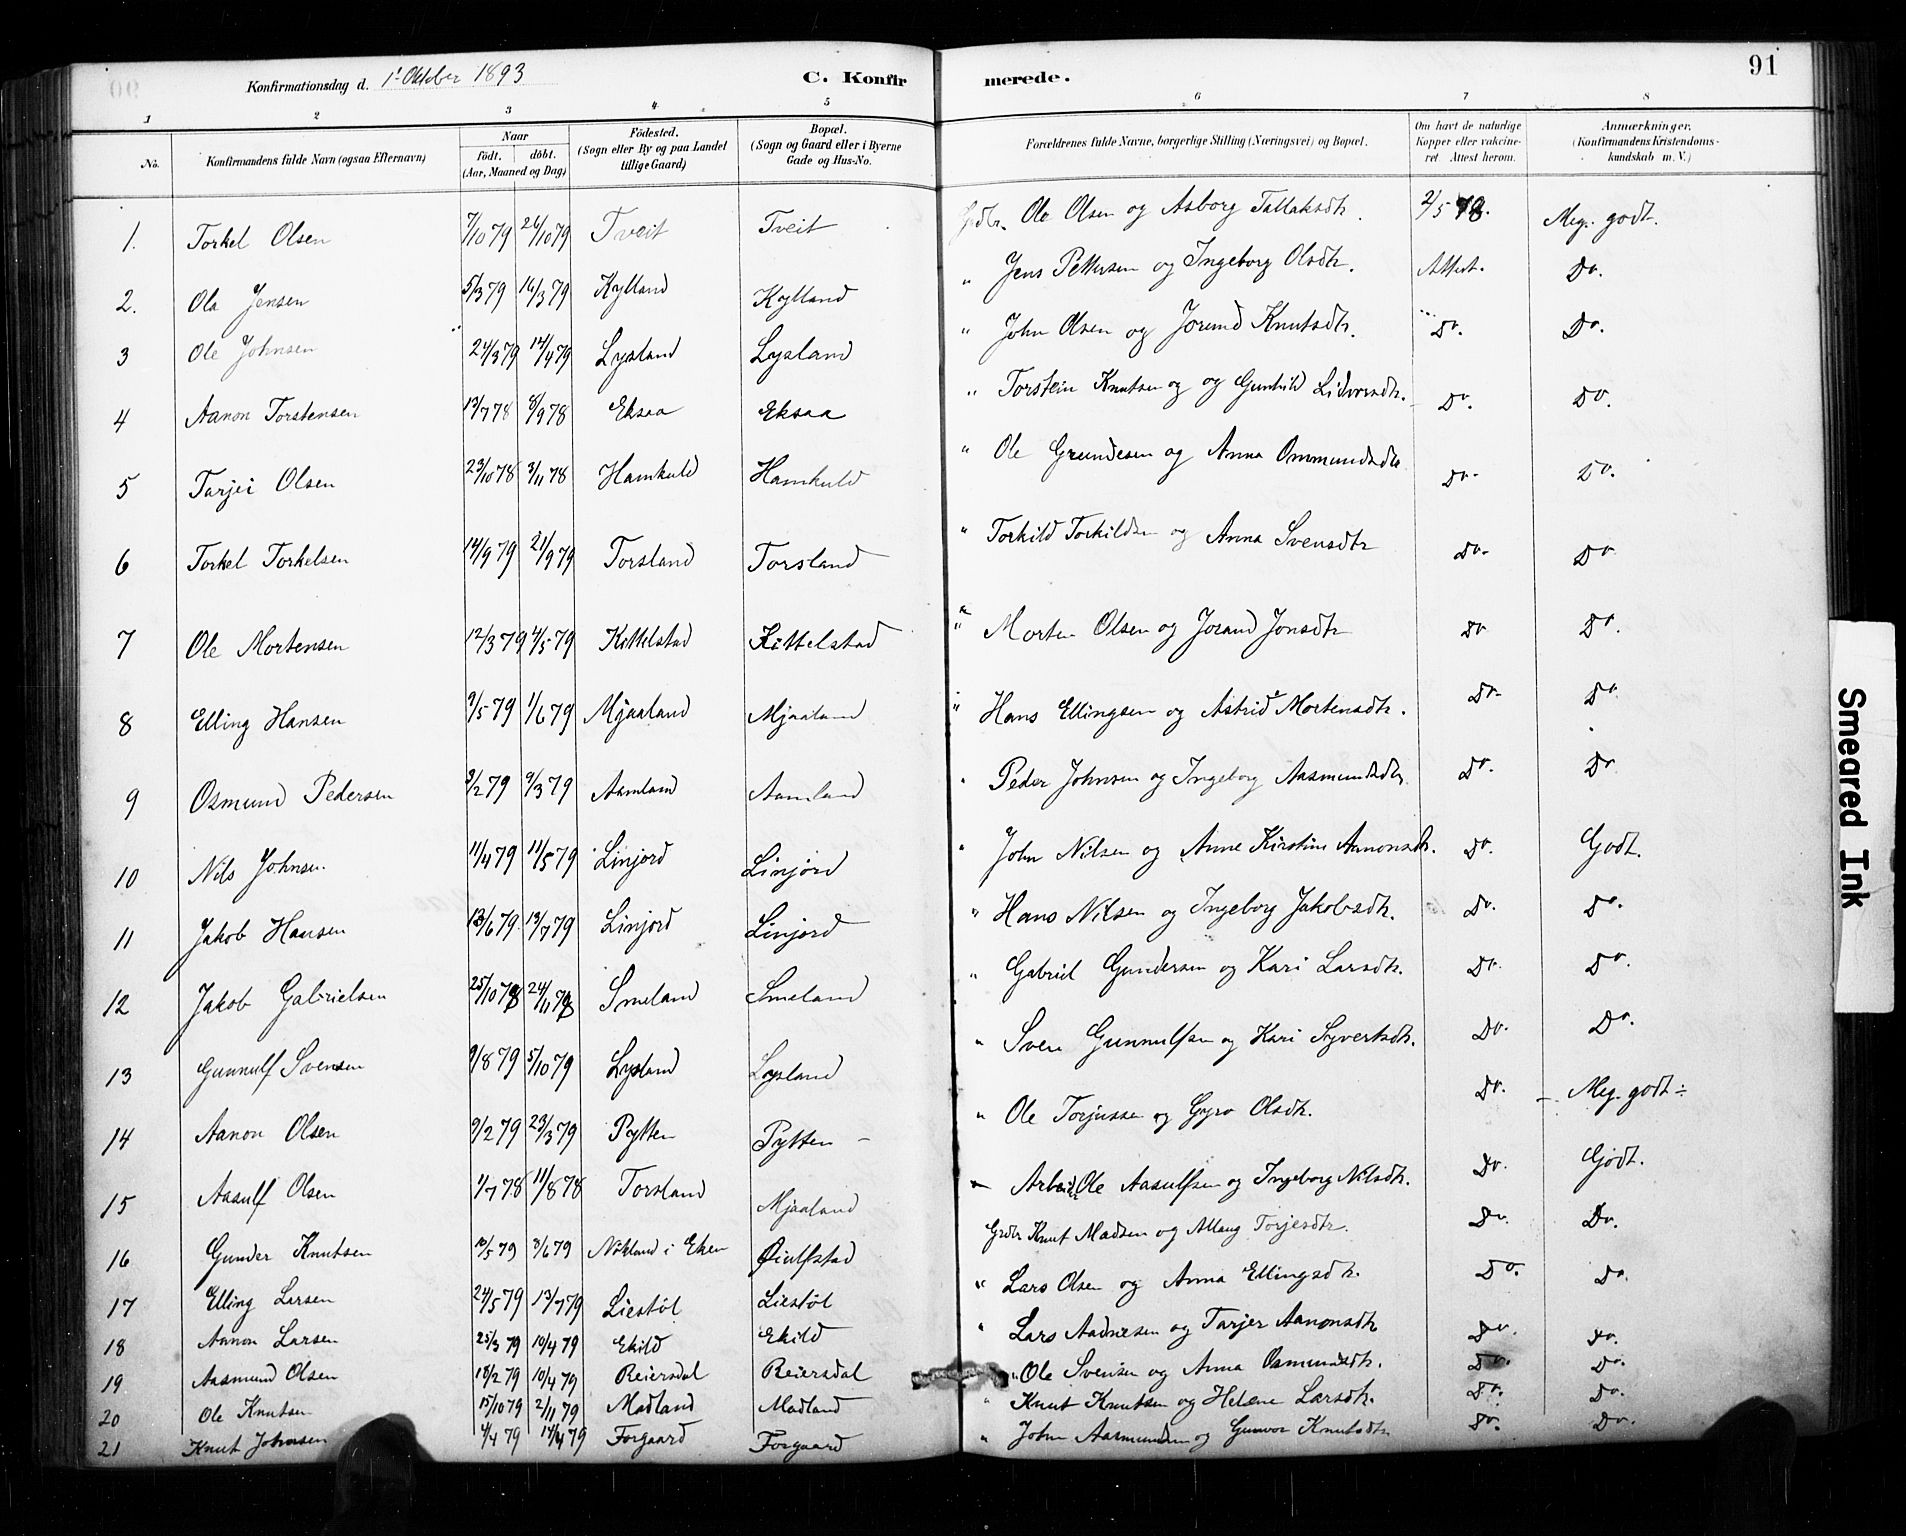 91
Konfirmationsdag d. 1' Oktober 1893 C. Konfirmerede.
1 2 3 4 5 6 7 8
No. Konfirmandens fulde Navn (ogsaa Efternavn) Naar födt. döbt. (Aar, Maaned og Dag) Födested. (Sogn eller By og paa Landet tillige Gaard) Bopæl. (Sogn og Gaard eller i Byerne Gade og Hus-No. Forældrenes fulde Navne, borgerlige Stilling (Næringsvei) og Bopæl. Om havt de naturlige Kopper eller vakcineret. Attest herom. Anmærkninger. (Konfirmandens Kristendomskundskab m. V.)
1. Torkel Olsen 7/10 79 26/10 79 Tveit Tveit Grdbr. Ole Olsen og Asborg Tallaksdtr. 2/5 78. Meg. godt.
2. Ola Jensen 5/3 79 16/3 79 Kylland Kylland " Jens Pettersen og Ingeborg Olsdtr. Attest. Do.
3 Ole Johnsen 24/3 79 14/4 79 Lysland Lysland " John Olsen og Jorund Knutsdtr. Do. Do.
4 Aanon Torstensen 13/7 78 8/9 78 Eksaa Eksaa " Torstein Knutsen og og Gunhild Lidvorsdtr. Do. Do.
5 Tarjei Olsen 23/10 78 3/11 78 Hamkuld Hamkuld " Ole Grundesen og Anna Ommundsdtr Do. Do.
6 Torkel Torkelsen 14/9 79 21/9 79 Torsland Torsland " Torkild Torkildsen og Anna Svensdtr Do. Do
7 Ole Mortensen 12/3 79 4/5 79 Kittelstad Kittelstad " Morten Olsen og Jorand Jonsdtr Do Do.
8 Elling Hansen 9/5 79 1/6 79 Mjaaland Mjaaland " Hans Ellingsen og Astrid Mortensdtr. Do. Do
9 Osmund Pedersen 2/2 79 9/3 79 Aamland Aamland " Peder Johnsen og Ingeborg Aasmundsdtr. Do. Do
10 Nils Johnsen. 11/4 79 11/5 79 Linjord Linjord " John Nilsen og Anne Kirstine Aanonsdtr. Do. Godt.
11 Jakob Hansen 13/6 79 13/7 79 Linjord Linjord " Hans Nilsen og Ingeborg Jakobsdtr. Do. Do.
12 Jakob Gabrielsen 25/10 78 24/11 78 Smeland Smeland " Gabriel Gundersen og Kari Larsdtr. Do. Do.
13 Gunnulf Svensen 9/8 79 5/10 79 Lysland Lysland " Sven Gunnulfsen og Kari Syvertsdtr. Do. Do.
14 Aanon Olsen 9/2 79 23/3 79 Pytten Pytten " Ole Torjussen og Gyro Olsdtr. Do. Meg. godt ÷
15 Aasulf Olsen 1/7 78 11/8 78 Torsland Mjaaland Arbeid. Ole Aasulfsen og Ingeborg Nilsdtr. Do. Godt.
16 Gunder Knutsen 10/5 79 3/6 79 Nökland i Eken Øiulfstad Grdbr Knut Madsen og Allaug Torjesdtr. Do. Do.
17 Elling Larsen 24/5 79 13/7 79 Liestöl Liestöl " Lars Olsen og Anna Ellingsdtr. Do. Do.
18 Aanon Larsen 25/3 79 10/4 79 Ekild Ekild " Lars Aadnesen og Tarjer Aanonsdtr Do. Do.
19 Aasmund Olsen 18/2 79 10/4 79 Reiersdal Reiersdal " Ole Svensen og Anna Osmundsdtr. Do. Do.
20 Ole Knutsen 15/10 79 2/11 79 Madland Madland " Knut Knutsen og Helene Larsdtr. Do. Do.
21 Knut Johnsen 4/4 79 14/4 79 Forgaard Forgaard " John Aasmundsen og Gunvor Knutsdtr Do. Do.
Smeared Ink